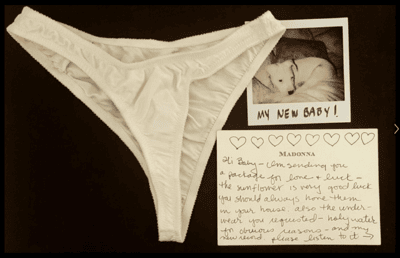 MY NEW BABY!
MADONNA
Hi Baby - I'm sending you
a package for love & luck -
the sunflower is very good luck
you should always have them
in your house. also the under-
wear you requested - holy water
for obvious reasons - and my
new please listen to it →